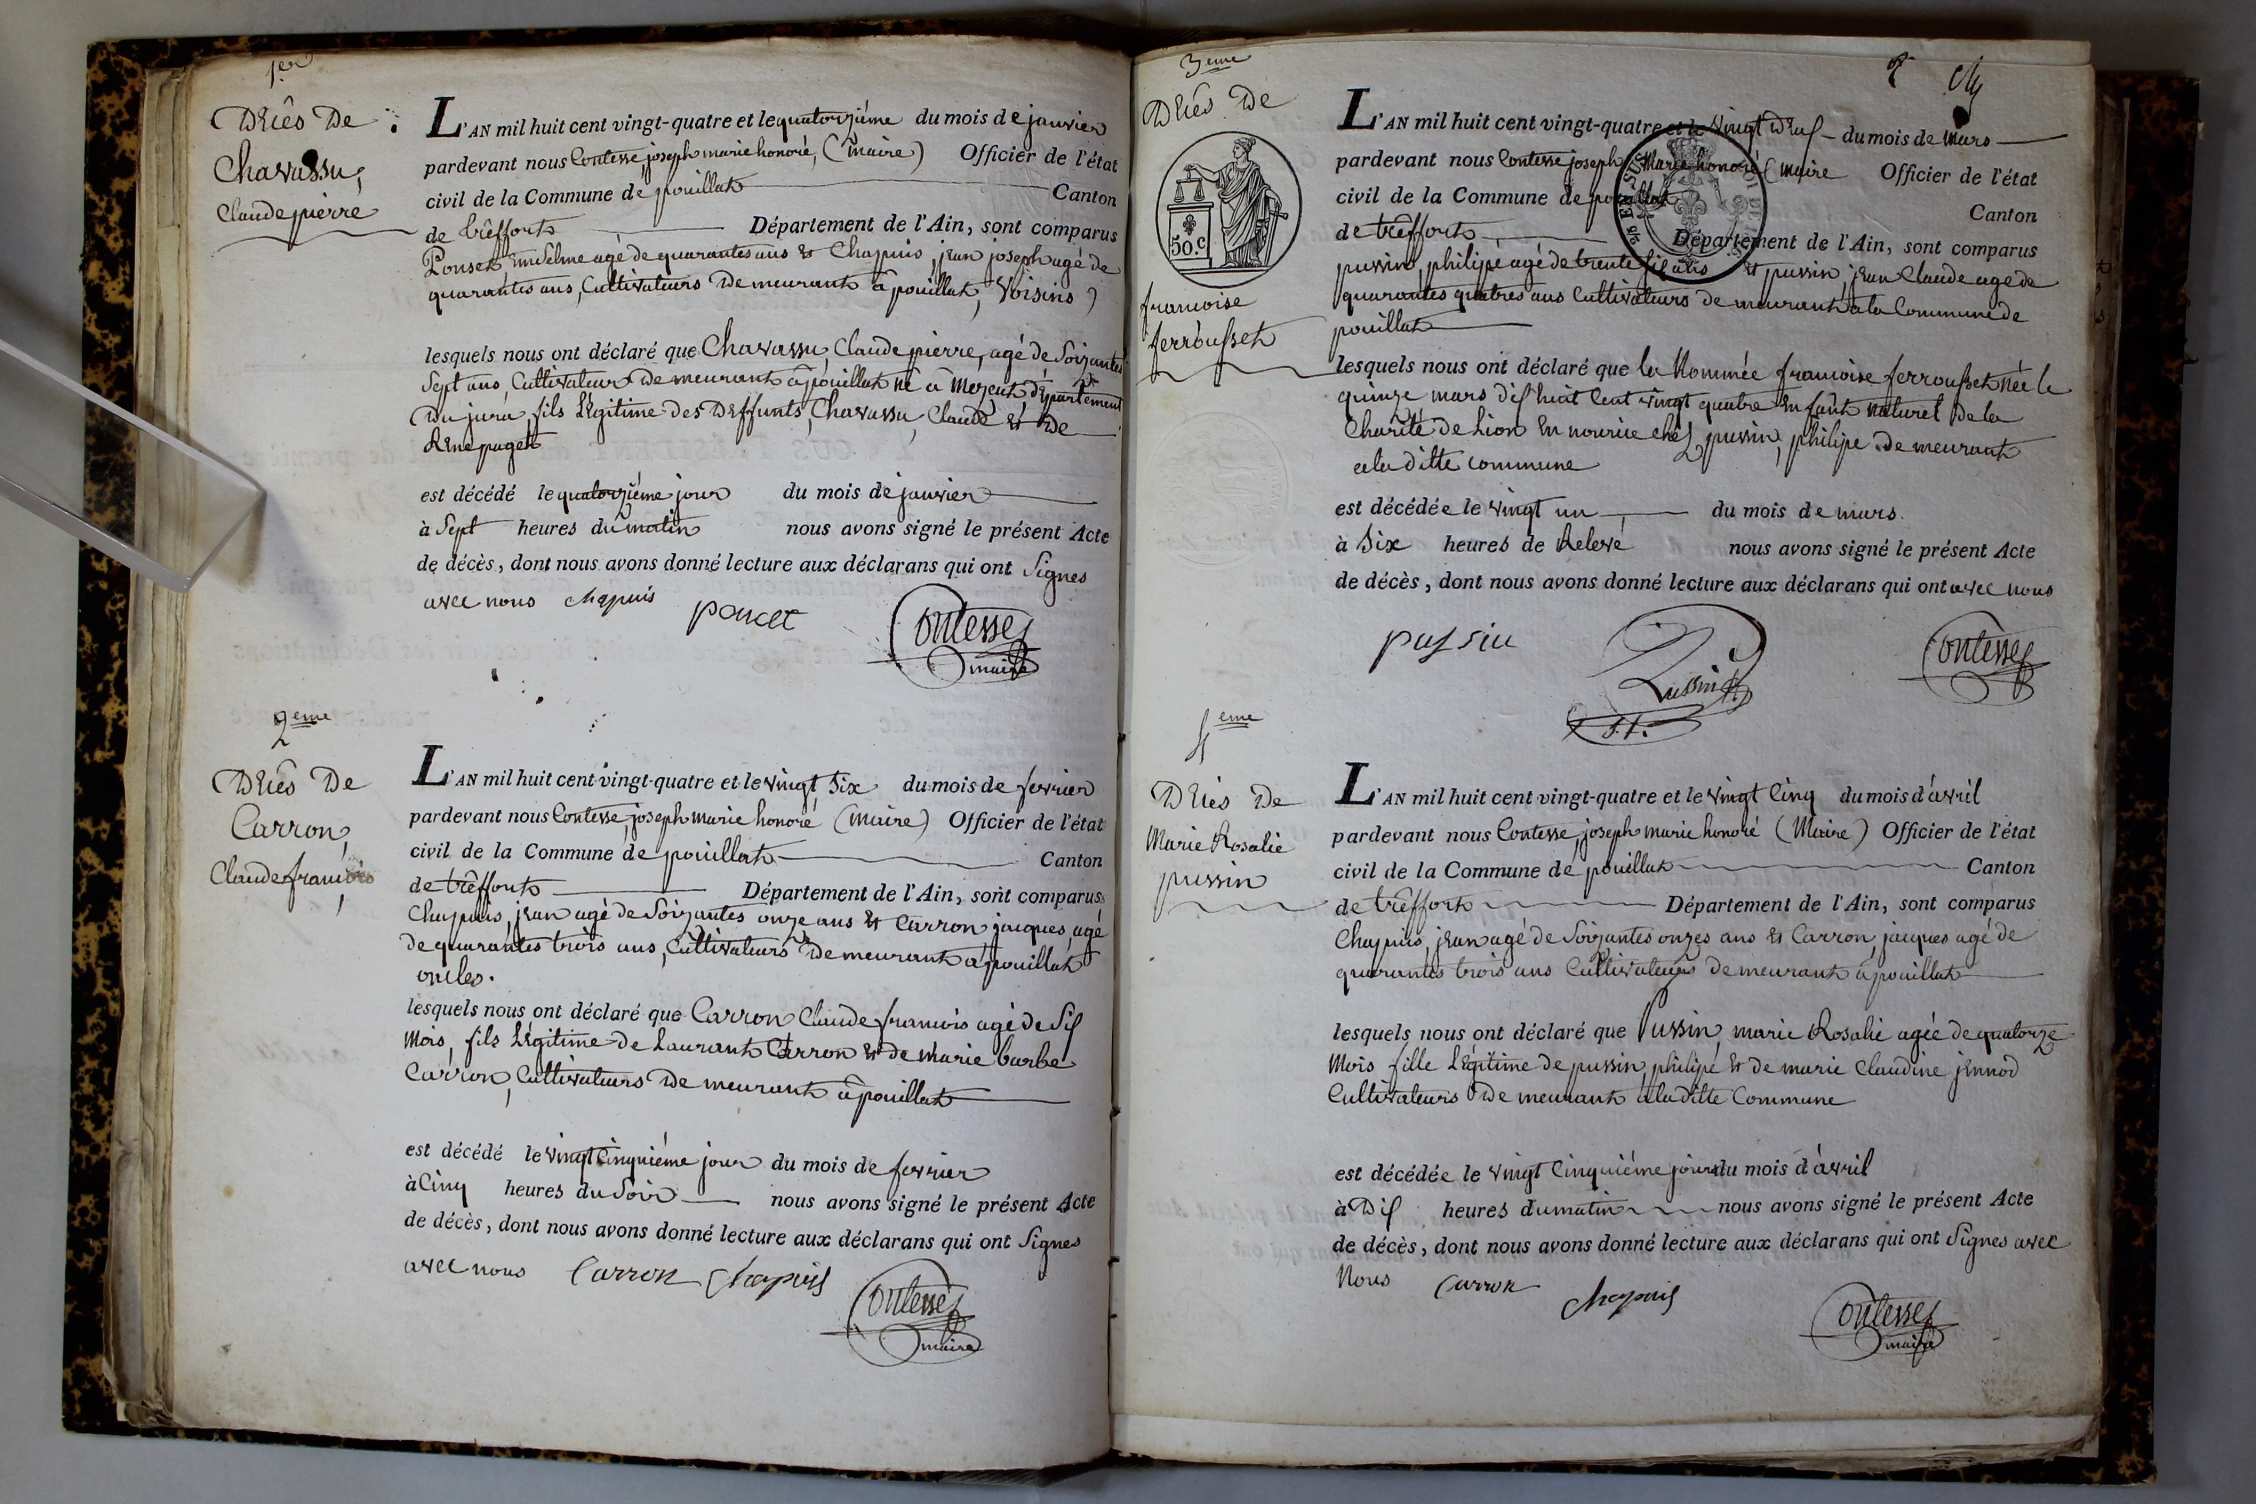 1er
Décês De
Chavassu,
Claude pierre
L'AN mil huit cent vingt-quatre et le quatorziéme du mois de janvier
pardevant nous Contesse, joseph marie honoré, (maire) Officier de l'état
civil de la Commune de pouillat Canton
de trêffort Département de l'Ain, sont comparus
Ponset, enselme agé de quarantes ans et Chapuis, jean joseph agé de
quarantes ans, Cultivateurs De meurant â pouillat, Voisins
lesquels nous ont déclaré que Chavassu, Claude pierre, agé de Soizantes
Sept ans, Cultivateur De meurant â pouillat né â département
Du jura, fils Légitime Des Deffunts, Chavassu, Claude et De
Rene paget
est décédé le quatorziéme jour du mois de janvier
à Sept heures du matin nous avons signé le présent Acte
de décès, dont nous avons donné lecture aux déclarans qui ont Signes
avec nous chapuis poncet Contesse
maire
2eme
Décês De
Carron,
Claude francois
L'AN mil huit cent vingt-quatre et le vingt Six du mois de fevrier
pardevant nous Contesse, joseph marie honoré (Maire) Officier de l'état
civil de la Commune de pouillat Canton
de trêffort Département de l'Ain, sont comparus
Chapuis, jean agé de Soizantes onze ans et Carron jacques, agé
de quarantes trois ans, Cultivateurs De meurant a pouillat
oncles.
lesquels nous ont déclaré que Carron Claude francois agé de Sis
Mois, fils Légitime de Laurant Carron et de marie barbe
Carron, Cultivateurs De meurant â pouillat
est décédé le vingt Cinquiéme jour du mois de fevrier
à Cinq heures du Soir nous avons signé le présent Acte
de décès, dont nous avons donné lecture aux déclarans qui ont Signes
avec nous Carron Chapuis Contesse
maire
3eme
Décês De
50.c
francoise
ferrousset
L'AN mil huit cent vingt-quatre et le vingt Deus du mois de mars
pardevant nous Contesse joseph Marie honoré (maire Officier de l'état
civil de la Commune de pouillat Canton
de trêffort Département de l'Ain, sont comparus
pussin, philipé agé de trente Sis ans et pussin, jean Claude agé de
quarantes quatres ans Cultivateurs de meurant a la Commune de
pouillat
lesquels nous ont déclaré que la Nommée francoise ferrousset née le
quinze mars dis huit Cent vingt quatre enfant naturel De la
Charité de Lion en nourice chés pussin, philipe De meurant
a la Ditte commune
est décédée le vingt un du mois de mars
à Six heures de Relevé nous avons signé le présent Acte
de décès, dont nous avons donné lecture aux déclarans qui ont avec nous
pussin Pussin Contesse
4eme
Décès De
Marie Rosalie
pussin
L'AN mil huit cent vingt-quatre et le vingt Cinq du mois d'avril
pardevant nous Contesse, joseph marie honoré (Maire) Officier de l'état
civil de la Commune de pouillat Canton
de trêffort Département de l'Ain, sont comparus
Chapuis, jean agé de Soizantes onzes ans et Carron, jacques agé de
quarantes trois ans Cultivateurs De meurant â pouillat
lesquels nous ont déclaré que Pussin, marie Rosalie agée de quatorze
Mois fille Légitime de pussin, philipé et de marie Claudine jennod
Cultivateurs De meurant a la ditte Commune
est décédée le vingt Cinquiéme jour du mois d'avril
à Dis heures du matin nous avons signé le présent Acte
de décès, dont nous avons donné lecture aux déclarans qui ont Signes avec
Nous Carron Chapuis Contesse
maire